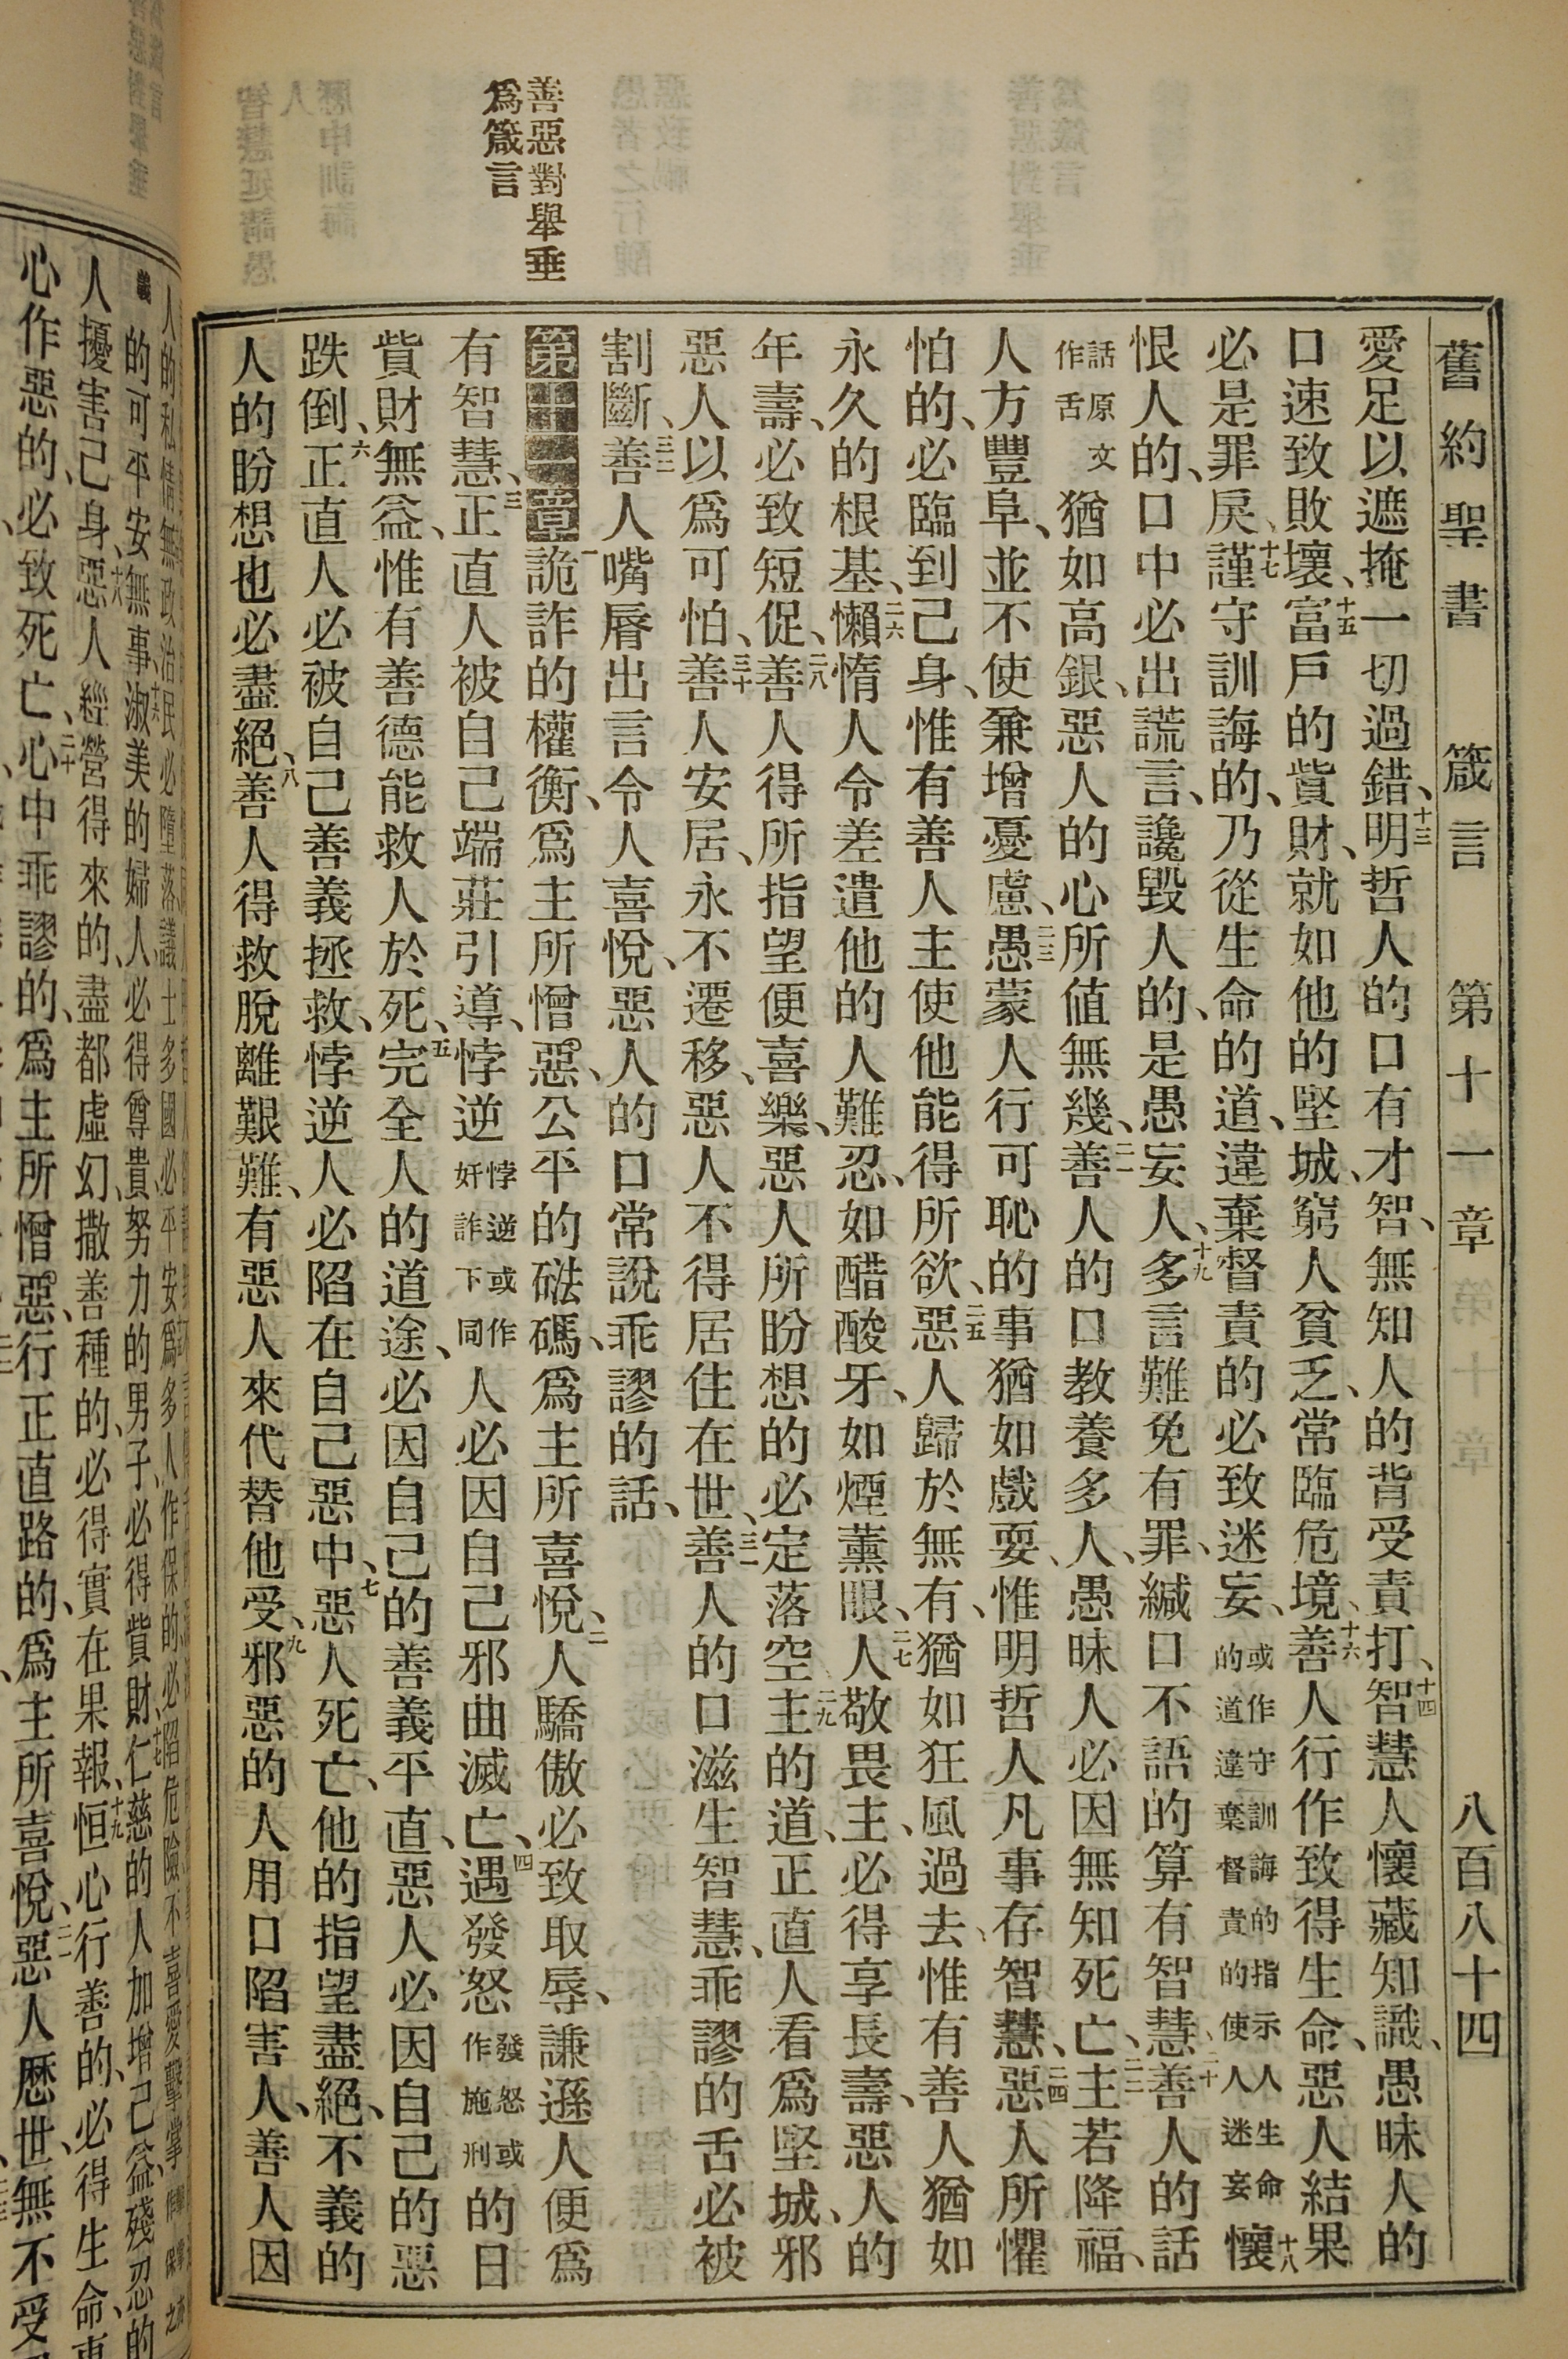 舊約聖書 箴言 第十一章 八百八十四
愛足以遮掩一切過錯、十三明哲人的口有才智、無知人的背受責打、十四智慧人懷藏知識、愚昧人的
口速致敗壞、十五富戶的貲財、就如他的堅城、窮人貧乏、常臨危境、十六善人行作致得生命、惡人結果
必是罪戾、十七謹守訓誨的、乃從生命的道、違棄督責的必致迷妄、或作守訓誨的指示人生命的道違棄督責的使人迷妄十八懷
恨人的、口中必出謊言、讒毀人的、是愚妄人、十九多言難免有罪、緘口不語的算有智慧、二十善人的話
話原文作舌猶如高銀、惡人的心所値無幾、二一善人的口教養多人、愚昧人必因無知死亡、二二主若降福、
人方豐阜、並不使兼增憂慮、二三愚蒙人行可恥的事猶如戲耍、惟明哲人凡事存智慧、二四惡人所懼
怕的、必臨到己身、惟有善人主使他能得所欲、二五惡人歸於無有、猶如狂風過去、惟有善人猶如
永久的根基、二六懶惰人令差遣他的人難忍、如醋酸牙、如煙薰眼、二七人敬畏主、必得享長壽、惡人的
年壽、必致短促、二八善人得所指望便喜樂、惡人所盼想的必定落空、二九主的道、正直人看爲堅城、邪
惡人以爲可怕、三十善人安居、永不遷移、惡人不得居住在世、三一善人的口滋生智慧、乖謬的舌必被
割斷、三二善人嘴脣出言令人喜悅、惡人的口常說乖謬的話、
善惡對舉垂
爲箴言
第十一章一詭詐的權衡、爲主所憎惡、公平的砝碼、爲主所喜悅、二人驕傲必致取辱、謙遜人便爲
有智慧、三正直人被自己端莊引導、悖逆悖逆或作奸詐下同人必因自己邪曲滅亡、四遇發怒發怒或作施刑的日
貲財無益、惟有善德能救人於死、五完全人的道途、必因自己的善義平直、惡人必因自己的惡
跌倒、六正直人必被自己善義拯救、悖逆人必陷在自己惡中、七惡人死亡、他的指望盡絕、不義的
人的盼想也必盡絕、八善人得救脫離艱難、有惡人來代替他受、九邪惡的人用口陷害人、善人因
的可平安無事、十六淑美的婦人、必得尊貴、努力的男子、必得貲財、十七仁慈的人加增己益、殘忍的
人擾害己身、十八惡人經營得來的、盡都虛幻、撒善種的、必得實在果報、十九恒心行善的、必得生命、
心作惡的、必致死亡、二十心中乖謬的、爲主所憎惡、行正直路的、爲主所喜悅、二一惡人歷世、無不受